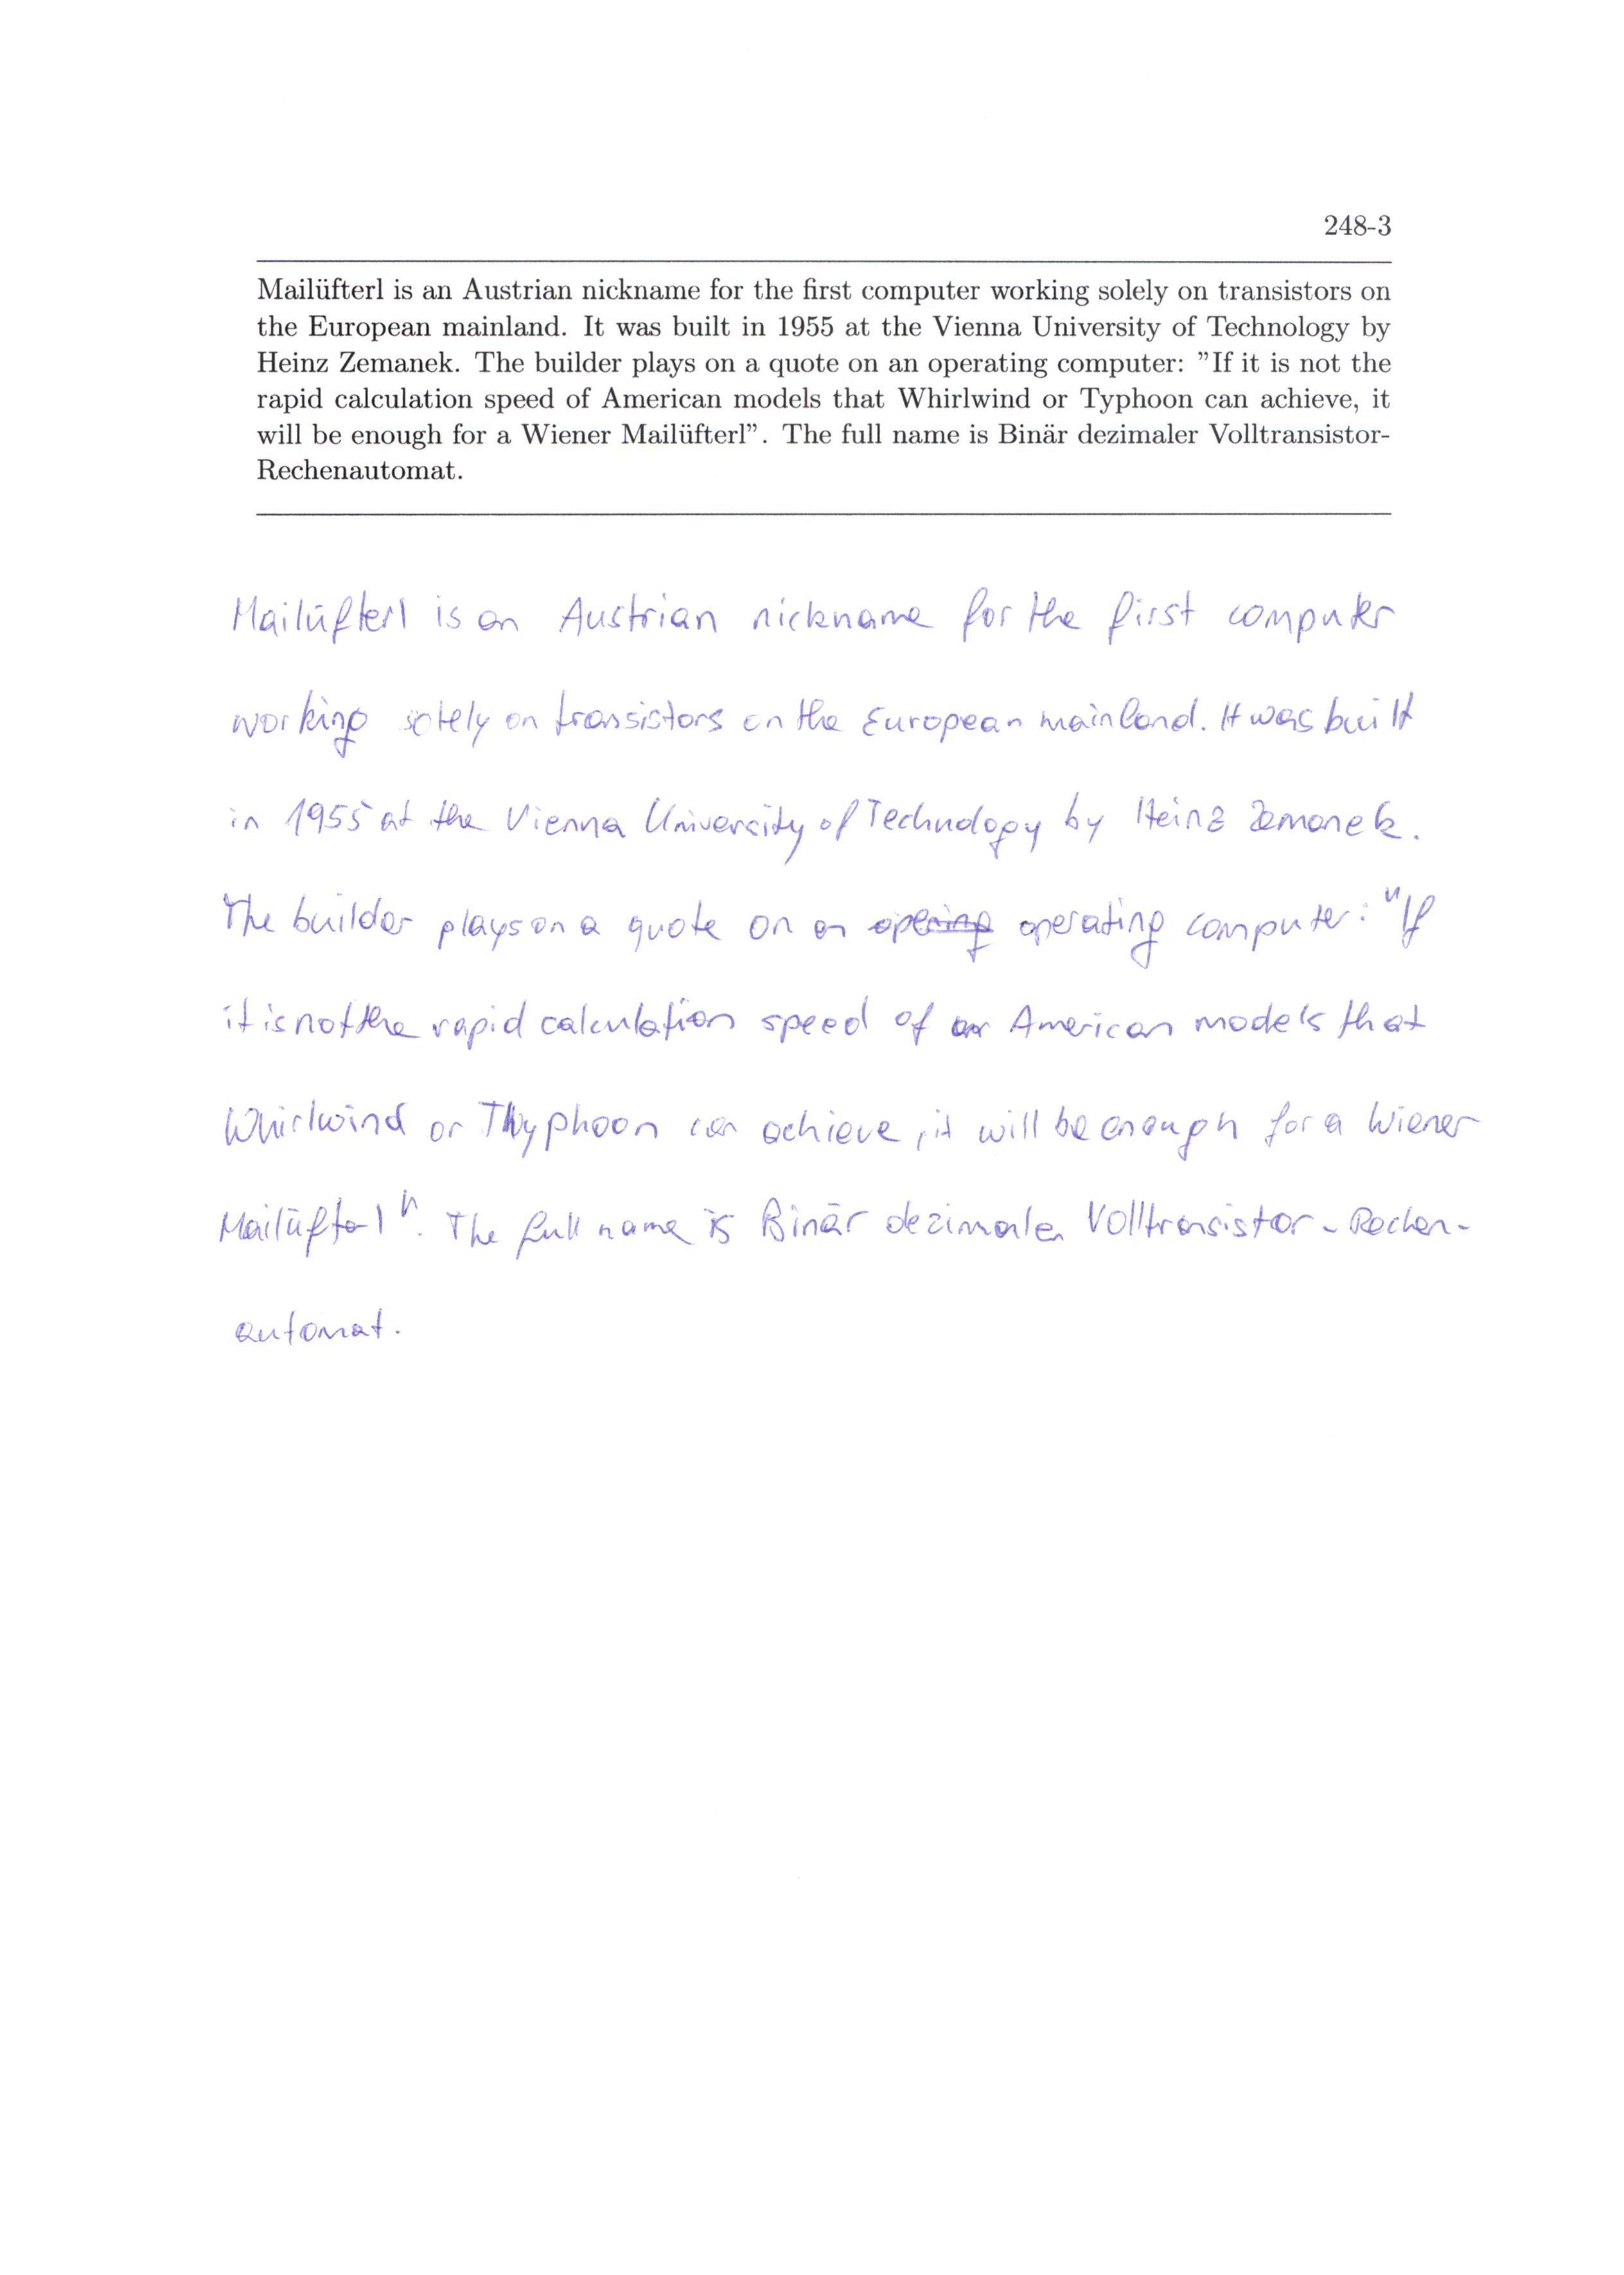 248-3
Mailüfterl is an Austrian nickname for the first computer working solely on transistors on
the European mainland. It was built in 1955 at the Vienna University of Technology by
Heinz Zemanek. The builder plays on a quote on an operating computer: "If it is not the
rapid calculation speed of American models that Whirlwind or Typhoon can achieve, it
will be enough for a Wiener Mailüfterl". The full name is Binär dezimaler Volltransistor-
Rechenautomat.
Mailüfterl is an Austrian nickname for the first computer
working solely on transistors on the European mainland. It was built
in 1955 at the Vienna University of Technology by Heinz Zemanek.
The builder plays on a quote on an operating computer: "If
it is not the rapid calculation speed of American models that
Whirlwind or Thyphoon can achieve, it will be enough for a Wiener
Mailüfterl". The full name is Binär dezimaler Volltransistor-Rechen-
automat.